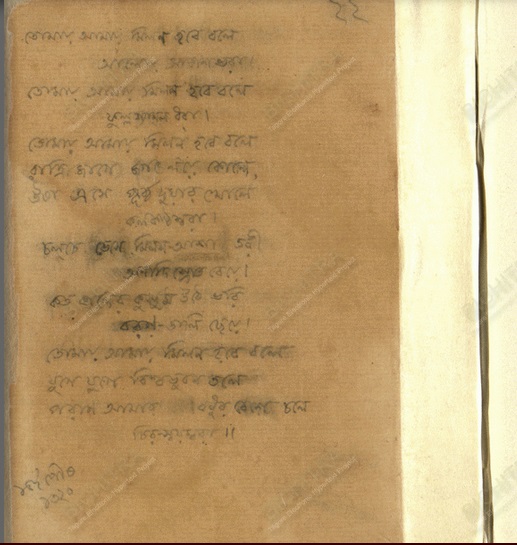 ২২
তোমায় আমায় মিলন হবে বলে
আলোয় আকাশ ভরা।
তোমায় আমায় মিলন হবে বলে
ফুল্ল শ্যামল ধরা।
তোমায় আমায় মিলন হবে বলে
রাত্রি জাগে জগৎ লয়ে কোলে,
উষা এসে পূর্ব দুয়ার খোলে
কলকণ্ঠস্বরা।
চলচে ভেসে মিলন-আশা তরী
অনাদিস্রোত বেয়ে।
কত কালের কুসুম উঠে ভরি
বরণ-ডালি ছেয়ে।
তোমায় আমায় মিলন হবে বলে
যুগে যুগে বিশ্বভুবন তলে
পরাণ আমার বধূর বেশে চলে
চির-স্বয়ম্বরা॥
পৌষ
১৩২০